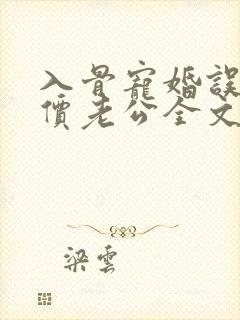 入骨寵婚誤
價老公全文
梁雲